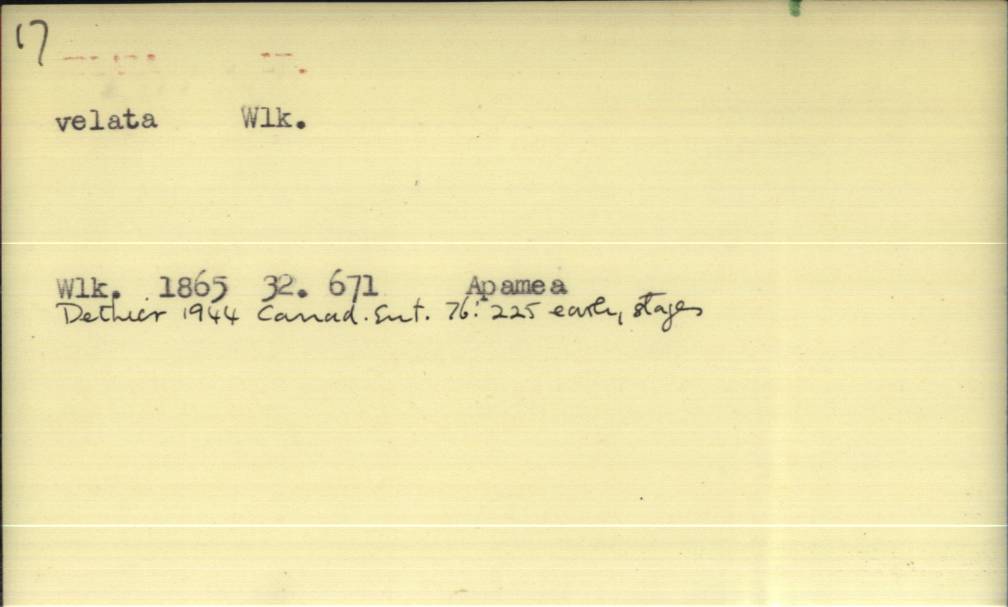 17
velata Wlk.
Wlk. 1865 32. 671 Apamea
Dethier 1944 Canad. Ent. 76: 225 early stages